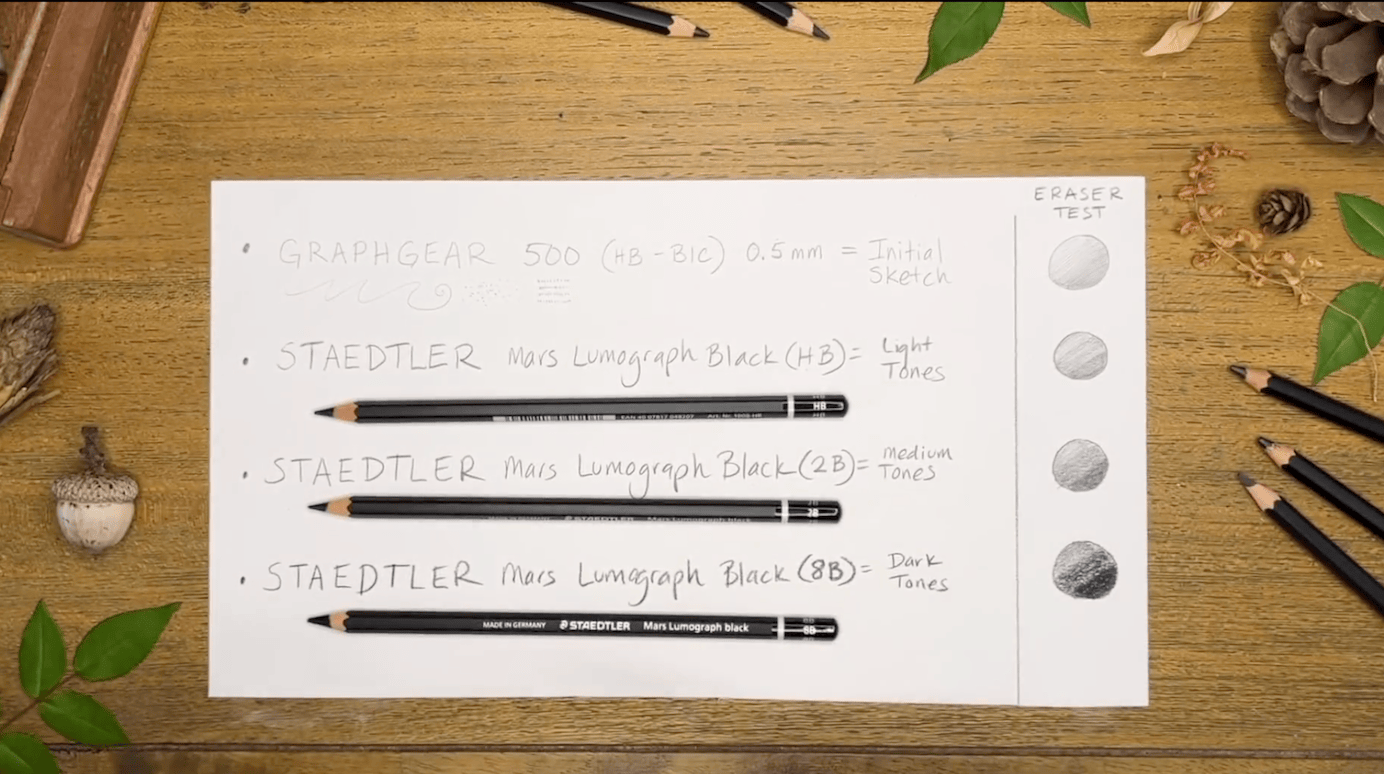 ERASER
TEST
• GRAPHGEAR 500 (HB-BIC) 0.5mm = Initial
Sketch
• STAEDTLER Mars Lumograph Black (HB) = Light
Tones
HB
• STAEDTLER Mars Lumograph Black (2B) = medium
Tones
STAEDTLER Mars Lumograph black 2B
• STAEDTLER Mars Lumograph Black (8B) = Dark
Tones
MADE IN GERMANY STAEDTLER Mars Lumograph black 8B